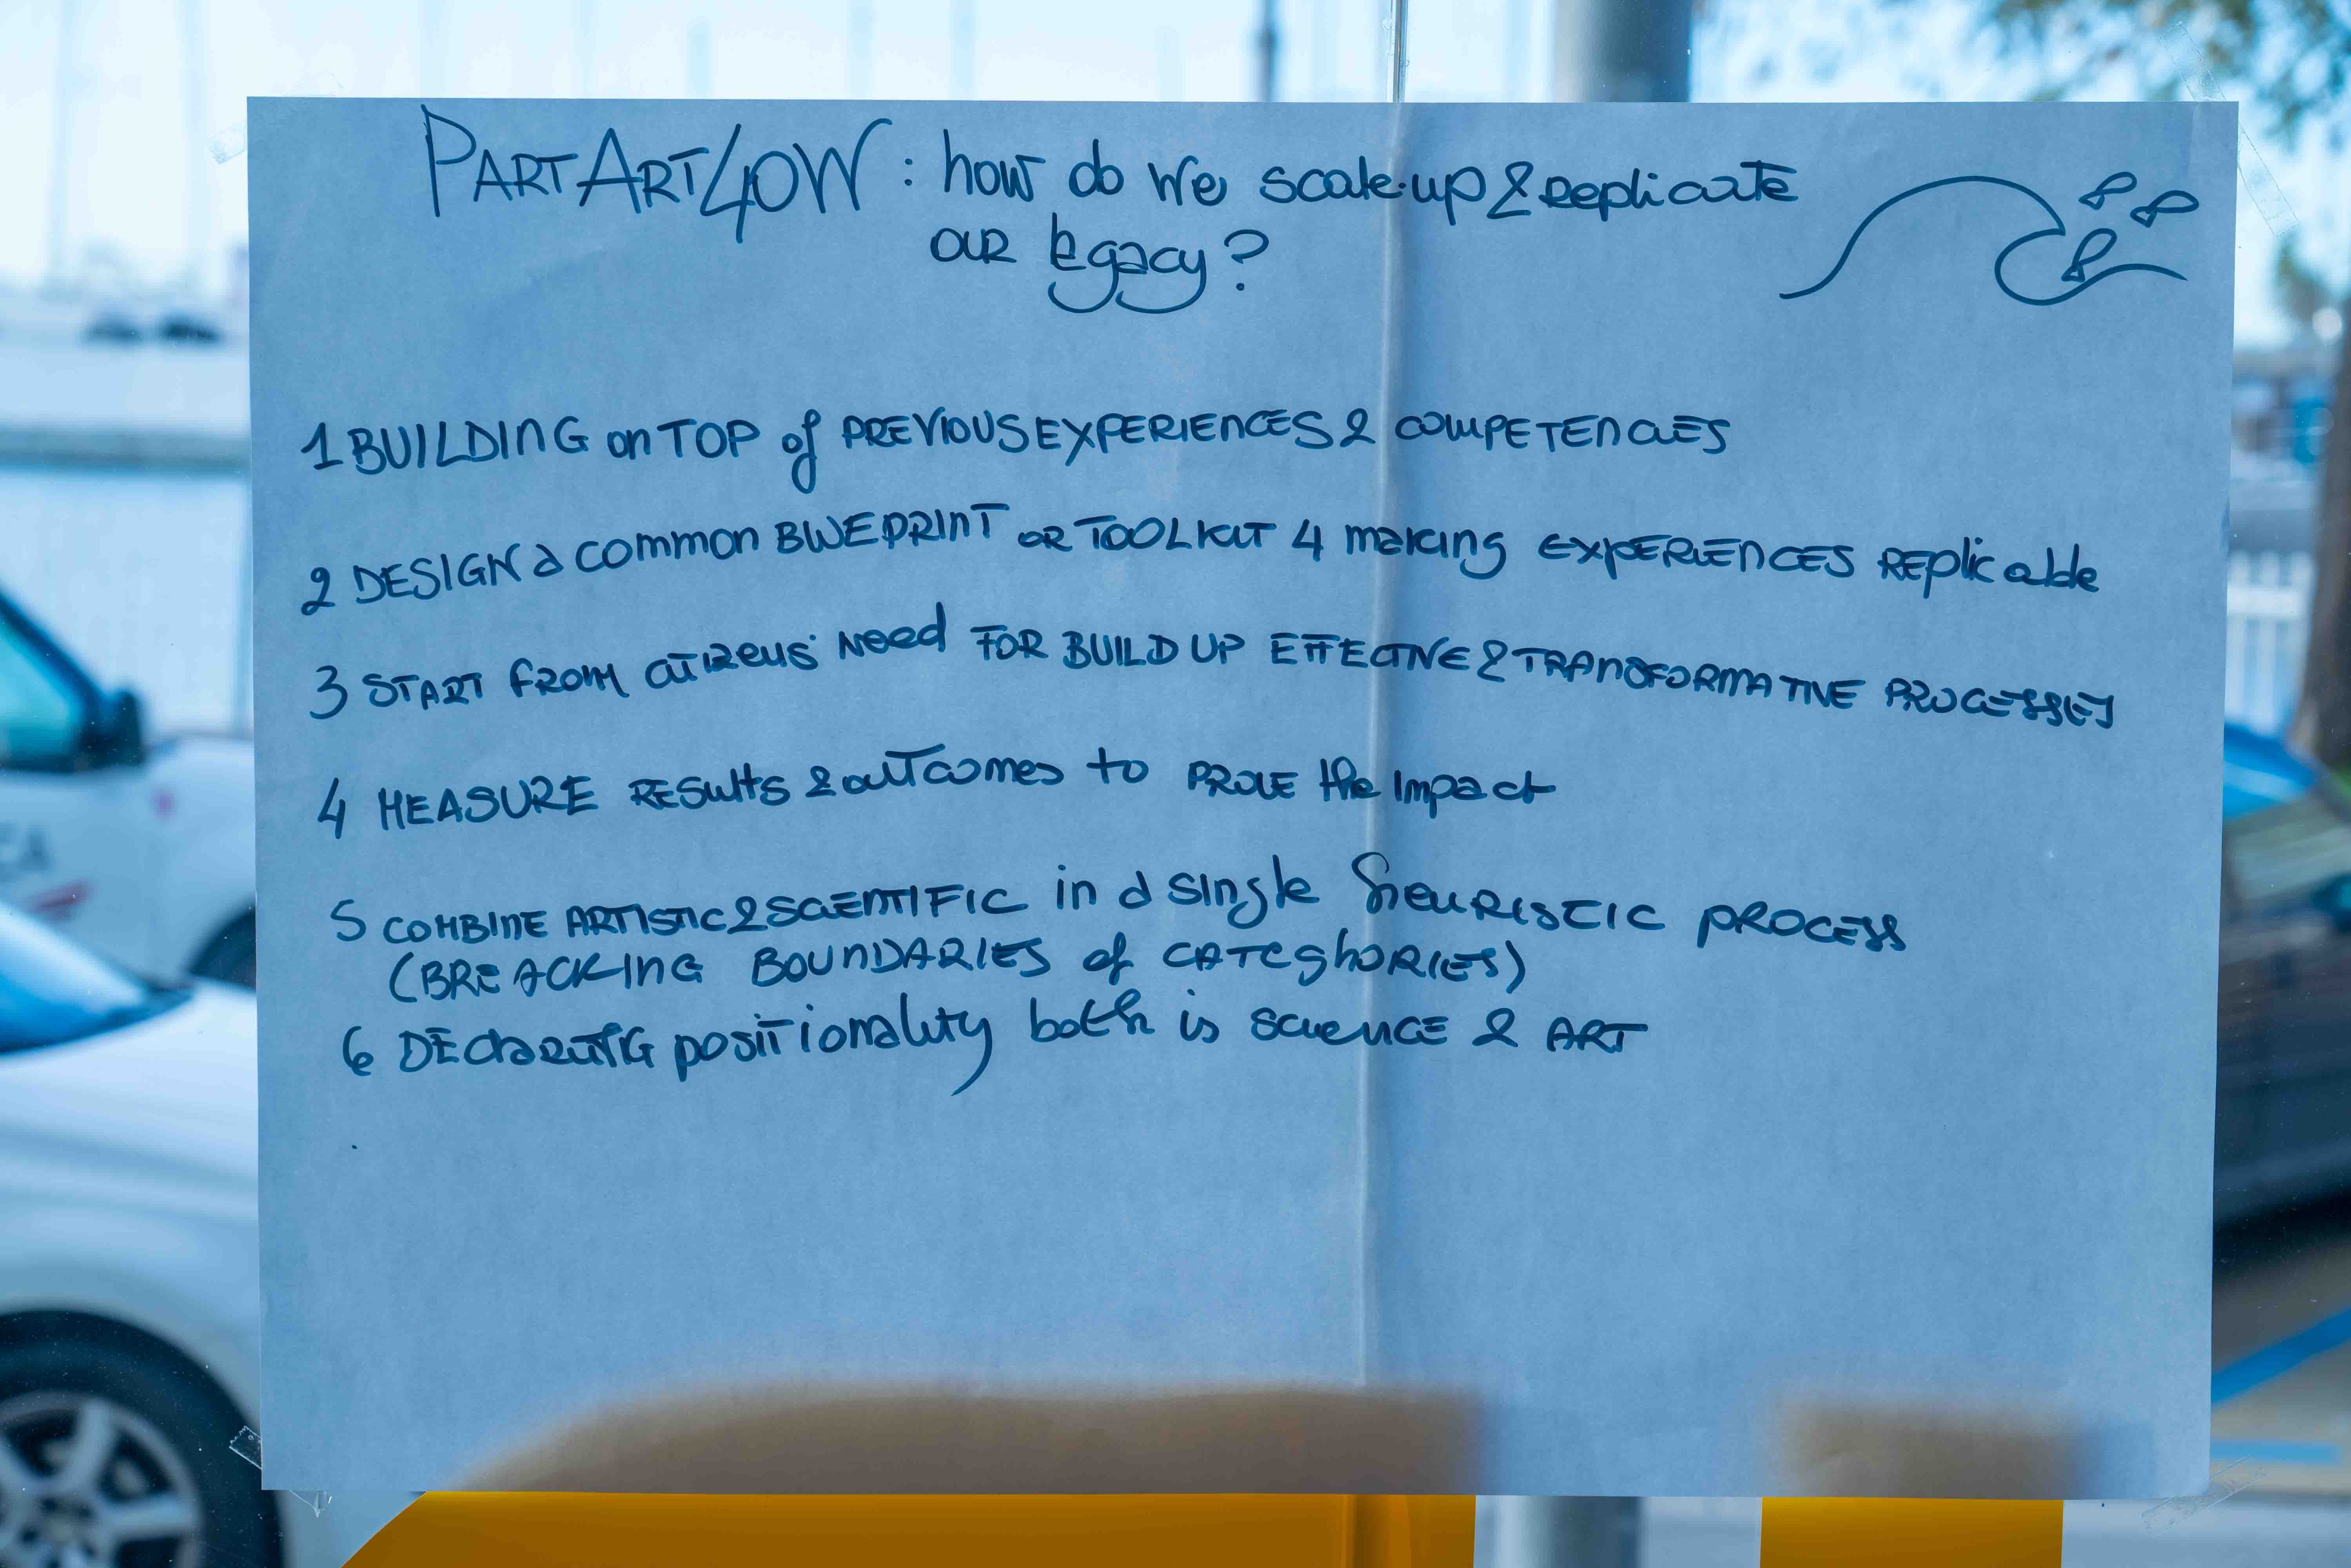 PARTART4OW: how do we scale-up & Replicate
OUR legacy?
1 BUILDING on TOP of PREVIOUS EXPERIENCES & COMPETENCIES
2 DESIGN a common BLUEPRINT OR TOOLKIT 4 making EXPERIENCES REplicable
3 START FROM CITIZENS' Need FOR BUILD UP EFFECTIVE & TRANSFORMATIVE PROCESSES
4 MEASURE RESults & outcomes to PROVE the Impact
5 COMBINE ARTISTIC & SCIENTIFIC in a single hEURISTIC PROCESS
(BREACKING BOUNDARIES of CATEGhORIES)
6 DEClaRING positionality both is science & ART
CA